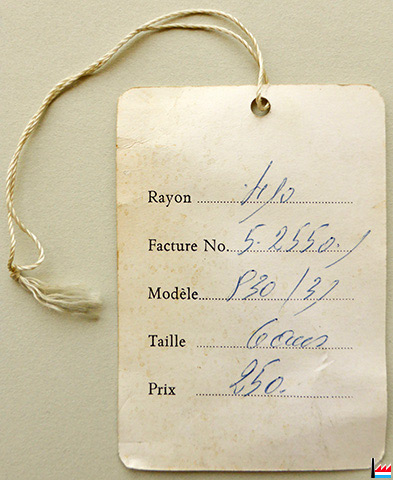 Rayon 410
Facture No. 5.2550./
Modèle 830/3)
Taille 6 ans
Prix 250.